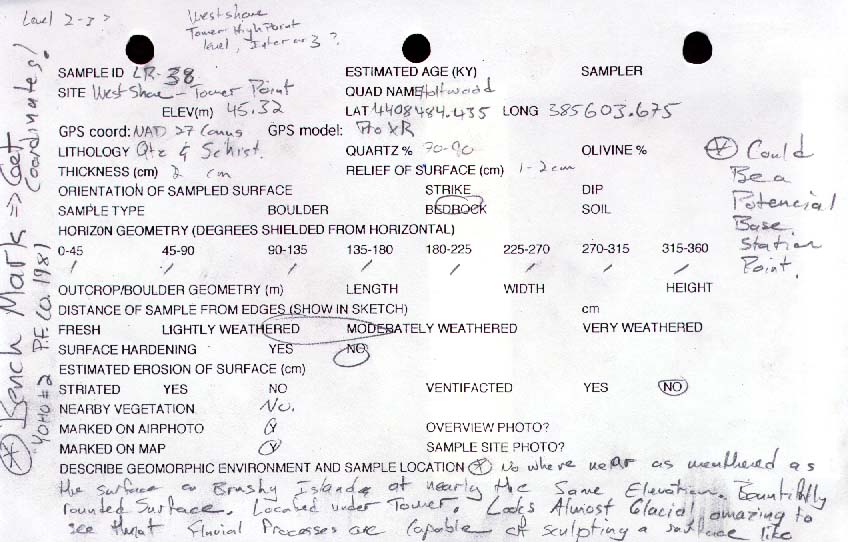 Level 2-3 >
Westshore
Tower High Point
level, Inter or 3 ?
SAMPLE ID LR-38 ESTIMATED AGE (KY) SAMPLER
SITE West Shore - Tower Point QUAD NAME Holtwood
ELEV(m) 45.32 LAT 4408484.435 LONG 385603.675
GPS coord: NAD 27 Conus GPS model: Pro XR
LITHOLOGY Qtz & Schist. QUARTZ % 70-90 OLIVINE %
THICKNESS (cm) 2 cm RELIEF OF SURFACE (cm) 1-2 cm
ORIENTATION OF SAMPLED SURFACE STRIKE DIP
SAMPLE TYPE BOULDER BEDROCK SOIL
HORIZON GEOMETRY (DEGREES SHIELDED FROM HORIZONTAL)
0-45 45-90 90-135 135-180 180-225 225-270 270-315 315-360
/ / / / / / / /
OUTCROP/BOULDER GEOMETRY (m) LENGTH WIDTH HEIGHT
DISTANCE OF SAMPLE FROM EDGES (SHOW IN SKETCH) cm
FRESH LIGHTLY WEATHERED MODERATELY WEATHERED VERY WEATHERED
SURFACE HARDENING YES NO
ESTIMATED EROSION OF SURFACE (cm)
STRIATED YES NO VENTIFACTED YES NO
NEARBY VEGETATION No.
MARKED ON AIRPHOTO OVERVIEW PHOTO?
MARKED ON MAP SAMPLE SITE PHOTO?
DESCRIBE GEOMORPHIC ENVIRONMENT AND SAMPLE LOCATION * No where near as weathered as
the surface on Brushy Island at nearly the Same Elevation. Beautifully
rounded Surface. Located under Tower. Looks Almost Glacial amazing to
see that Fluvial Processes are capable of sculpting a surface like
* Could
Be a
Potencial
Base
Station
Point.
* Bench Mark => Get
Coordinates!
YOHO #2 P.F. CO. 1981